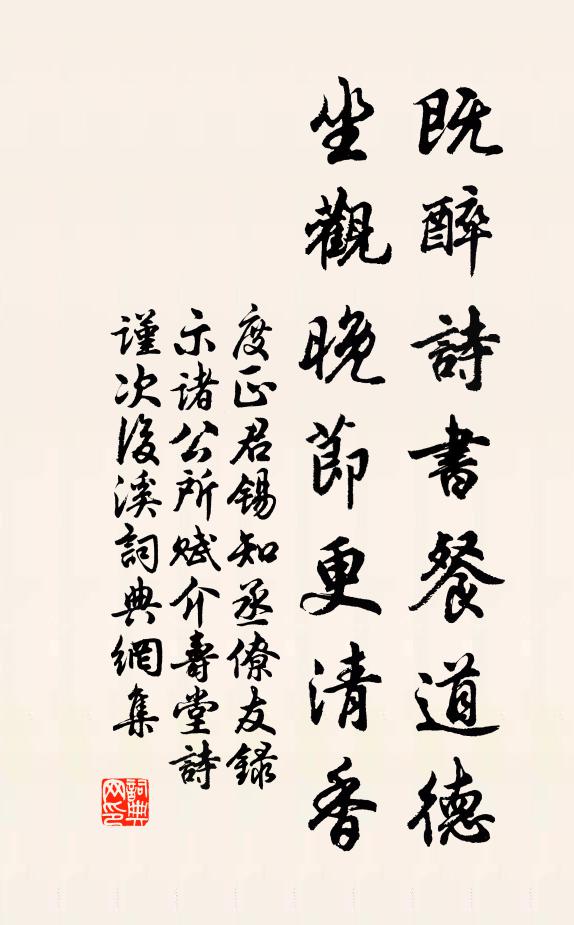 既醉詩書餐道德
坐觀晚節更清香
度正君錫知丞僚友録
示诸公所赋介壽堂詩
謹次後溪詞典網集
詞典网印